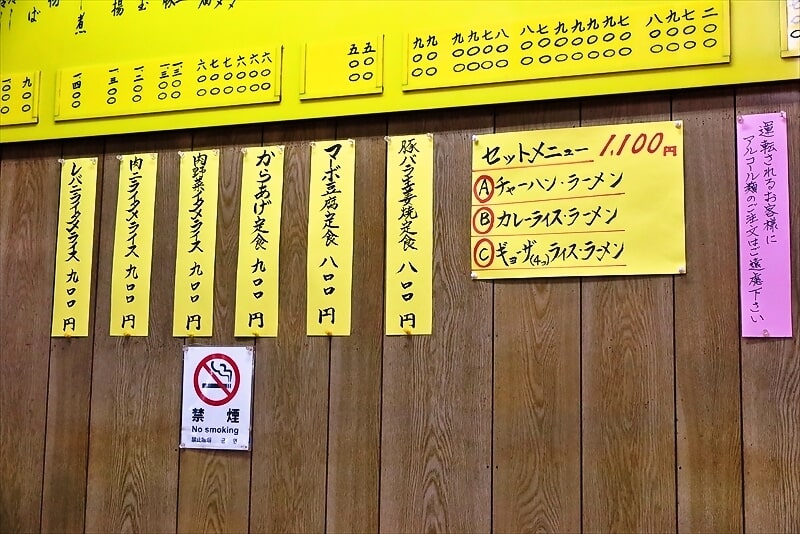 二〇〇
七〇〇
九〇〇
八〇〇
七〇〇
九〇〇
九〇〇
九〇〇
九〇〇
七〇〇
八〇〇
八〇〇
七〇〇
九〇〇
九〇〇
九〇〇
九〇〇
五〇〇
五〇〇
六〇〇
六〇〇
六〇〇
七〇〇
七〇〇
六〇〇
一三〇〇
一三〇〇
一二〇〇
一三〇〇
一四〇〇
九〇〇
一〇〇〇
運転されるお客様に
アルコール類のご注文はご遠慮下さい
セットメニュー 1,100円
Ⓐチャーハン・ラーメン
Ⓑカレーライス・ラーメン
Ⓒギョーザ(4つ)ライス・ラーメン
豚バラ生姜焼定食 八〇〇円
マーボ豆腐定食 八〇〇円
からあげ定食 九〇〇円
肉野菜イタメライス 九〇〇円
肉ニライタメライス 九〇〇円
レバニライタメライス 九〇〇円
禁煙
No smoking